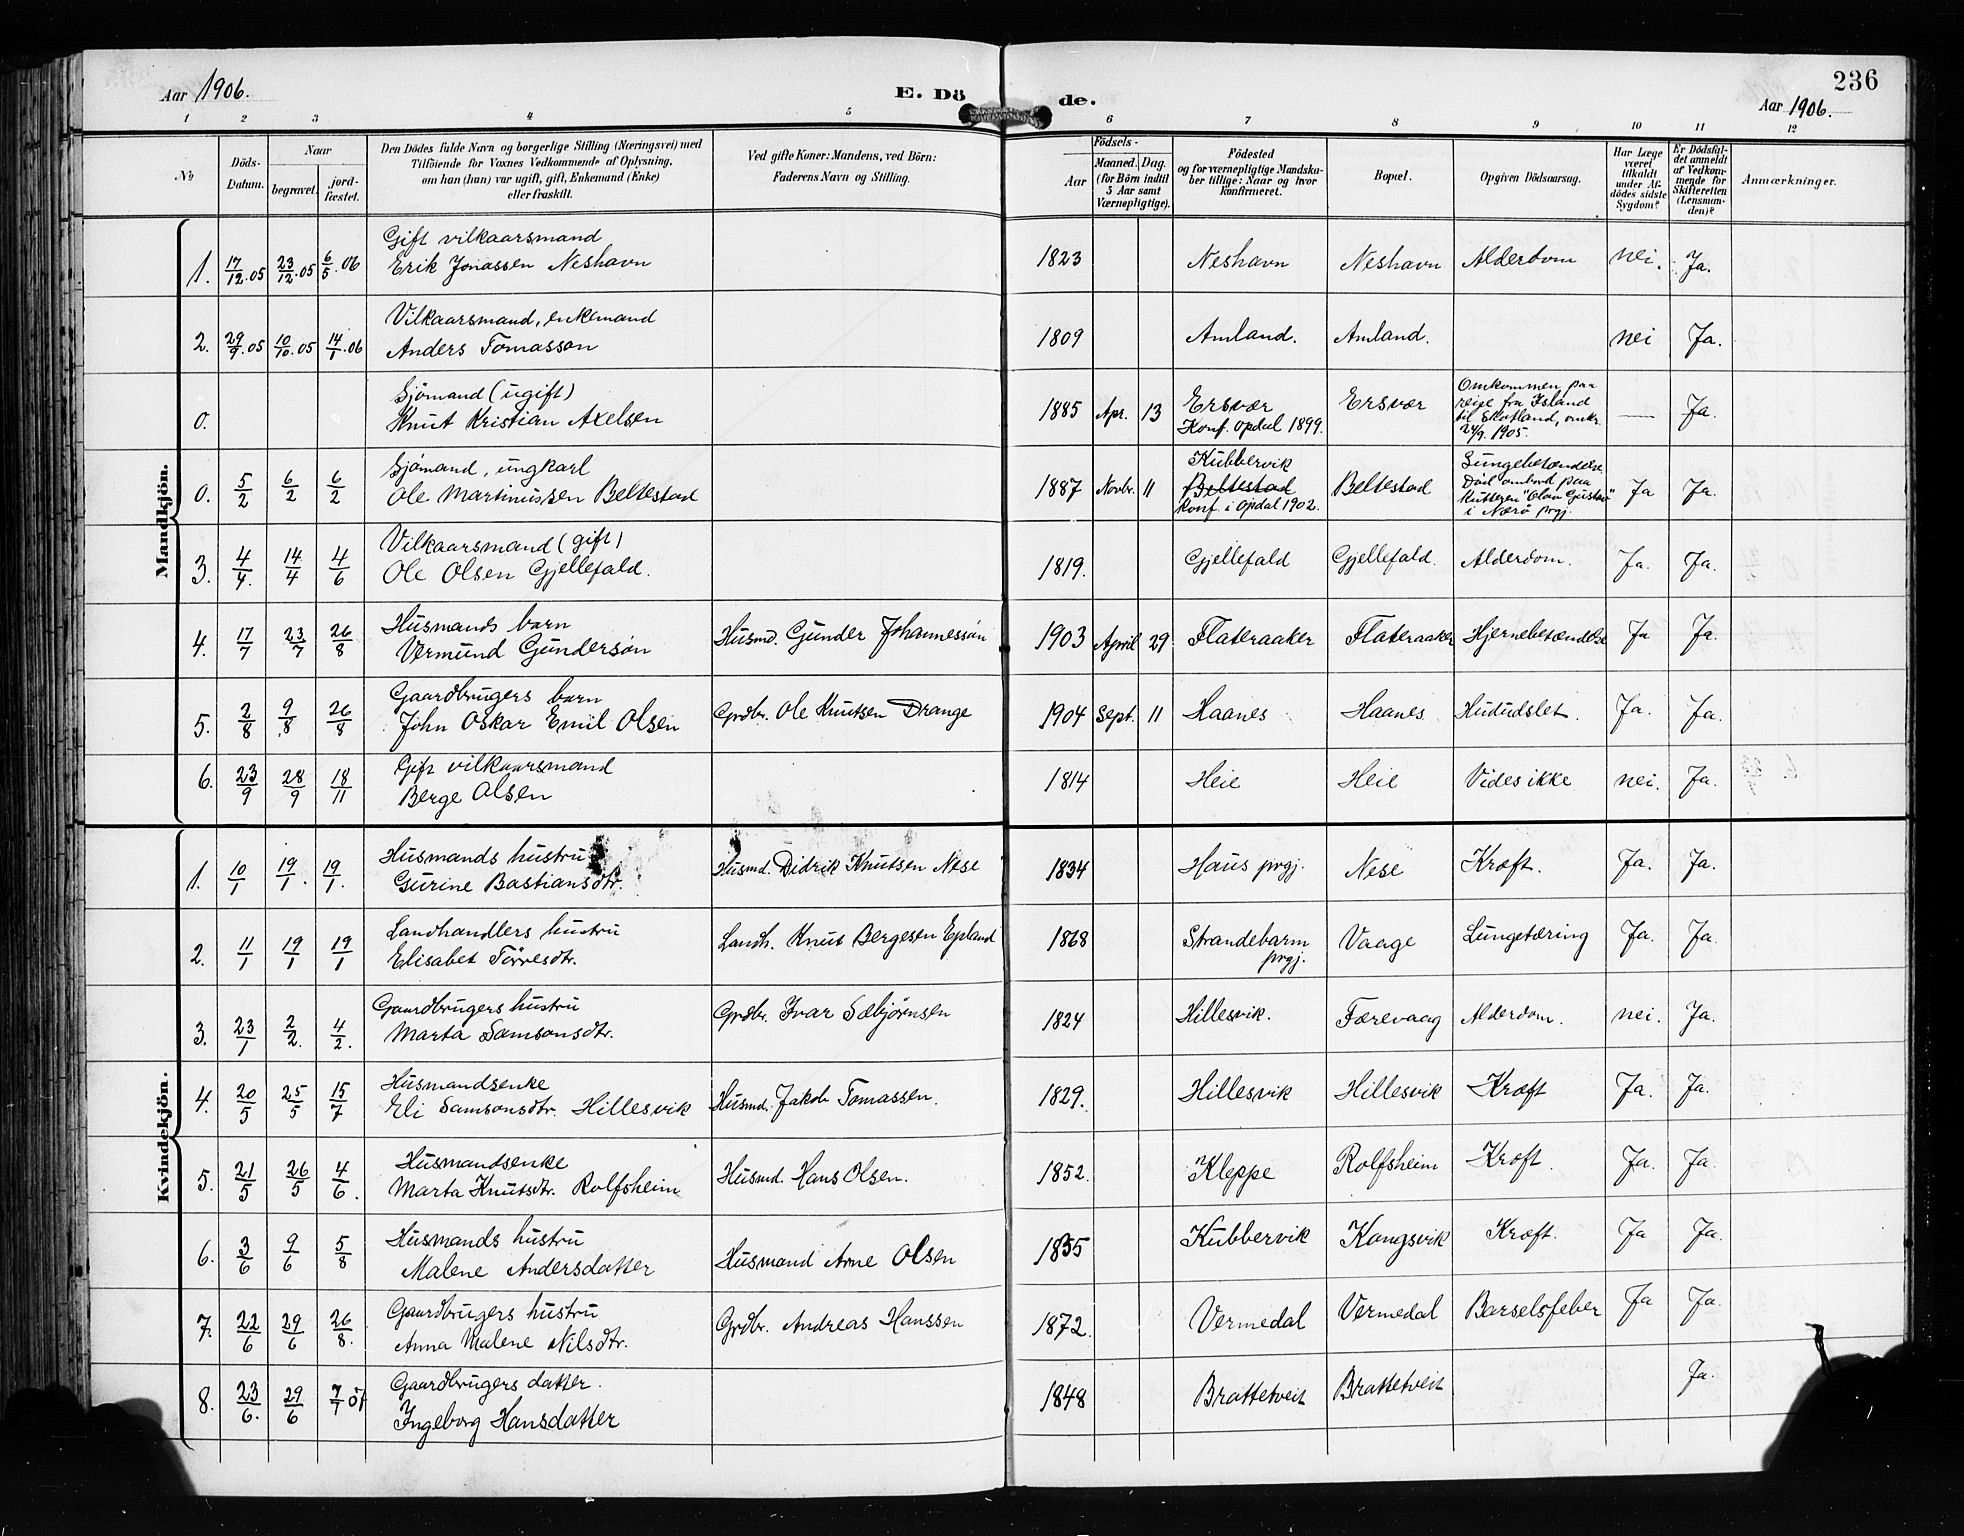 236
Aar 1906. E. Dö de. Aar 1906.
1 2 3 4 5 6 7 8 9 10 11 12
No
Döds-Datum.
Naar
begravet.
jord-fæstet.
Den Dödes fulde Navn og borgerlige Stilling (Næringsvei) med
Tilföiende for Voxnes Vedkommende af Oplysning,
om han (hun) var ugift, gift, Enkemand (Enke)
eller fraskilt.
Ved gifte Koner: Mandens, ved Börn:
Faderens Navn og Stilling.
Födsels-
Aar
Maaned. Dag.
(for Börn indtil
5 Aar samt
Værnepligtige).
Födested
og for værnepligtige Mandska-
ber tillige: Naar og hvor
konfirmeret.
Bopæl.
Opgiven Dödsaarsag.
Har Læge
været
tilkaldt
under Af-
dödes sidste
Sygdom?
Er Dödsfal-
det anmeldt
af Vedkom-
mende for
Skifteretten
(Lensman-
den)?
Anmærkninger.
Mandkjön.
Gift vilkaarsmand
1. 17/12.05 23/12.05 6/5.06 Erik Jonassen Neshavn 1823 Neshavn Neshavn Alderdom nei. Ja.
Vilkaarsmand, enkemand
2. 29/9.05 10/10.05 14/1.06 Anders Tomasson 1809 Amland. Amland. nei Ja.
Sjömand (ugift)
0. Knut Kristian Axelsen 1885 Apr. 13 Ersvær Ersvær — Ja.
Konf. Opdal 1899.
Omkommen paa
reise fra Island
til Skotland, omkr.
24/9. 1905.
Sjömand, ungkarl
0. 5/2 6/2 6/2 Ole Martinussen Beltestad 1887 Novbr. 11 Kubbervik
Beltestad Beltestad Ja Ja.
Konf. i Opdal 1902.
Lungebetændelse
Död ombord paa
Kutteren "Olav Gustav"
i Nærö prgj.
Vilkaarsmand (gift)
3. 4/4. 14/4 4/6 Ole Olsen Gjellefald. 1819. Gjellefald Gjellefald. Alderdom. Ja. Ja.
Husmands barn
4. 17/7 23/7 26/8 Vermund Gundersön Husmd. Gunder Johannessön 1903 April 29. Flateraaker Flateraaker Hjernebetændelse Ja Ja.
Gaardbrugers barn
5. 2/8 9/8 26/8 John Oskar Emil Olsen Grdbr. Ole Knutsen Drange 1904 Sept. 11 Haanes Haanes Hududslet. Ja. Ja.
Gift vilkaarsmand
6. 23/9 28/9 18/11 Berge Olsen 1814 Heie Heie Vides ikke nei. Ja.
Kvindekjön.
Husmands hustru
1. 10/1 19/1. 19/1. Gurine Bastiansdtr. Husmd. Didrik Knutsen Nese 1834 Haus prgj. Nese Kræft. Ja. Ja.
Landhandlers hustru
2. 11/1 19/1 19/1 Elisabet Törresdtr. Landh. Knut Bergesen Epland 1868 Strandebarm
prgj. Vaage Lungetæring Ja. Ja.
Gaardbrugers hustru
3. 23/1 2/2. 4/2. Marta Samsonsdtr. Grdbr. Ivar Sæbjörnsen 1824 Hillesvik. Færevaag Alderdom. nei. Ja.
Husmandsenke
4. 20/5 25/5 15/7 Eli Samsonsdtr. Hillesvik Husmd. Jakob Tomassen. 1829. Hillesvik Hillesvik Kræft Ja. Ja.
Husmandsenke
5. 21/5 26/5 4/6. Marta Knutsdtr. Rolfsheim Husmd. Hans Olsen. 1852. Kleppe Rolfsheim Kræft. Ja. Ja.
Husmands hustru
6. 3/6 9/6 5/8 Malene Andersdatter Husmand Arne Olsen 1855 Kubbervik Kongsvik Kræft. Ja Ja.
Gaardbrugers hustru
7. 22/6 29/6 26/8. Anna Malene Nilsdtr. Grdbr. Andreas Hanssen 1872. Vermedal Vermedal Barselsfeber Ja Ja.
Gaardbrugers datter.
8. 23/6. 29/6 Ingeborg Hansdatter 1848 Brattetveit Brattetveit Ja.